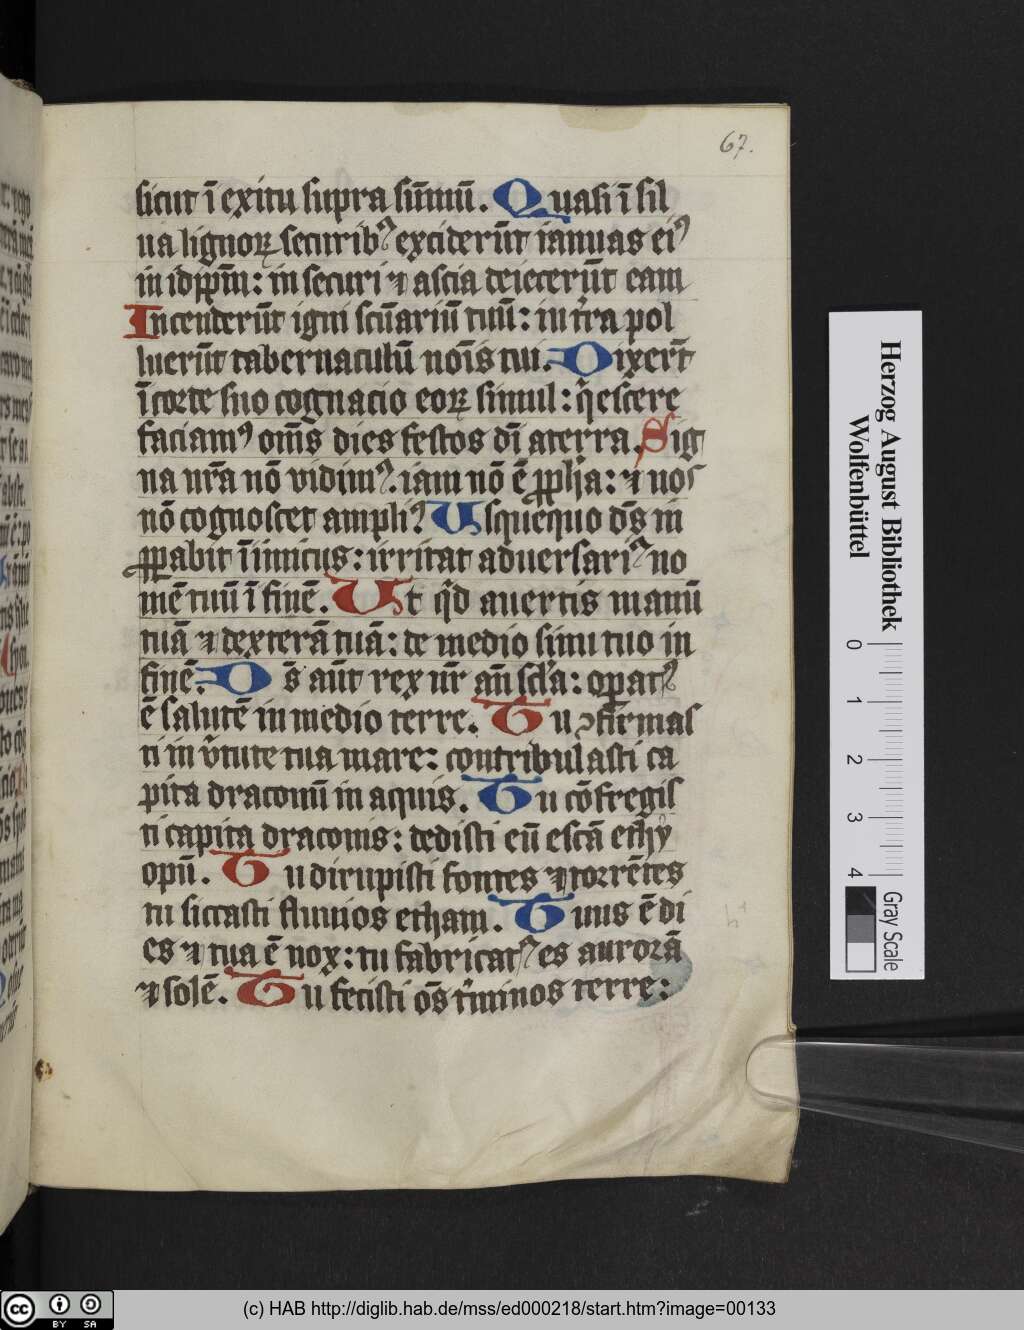 67.
sicut ī exitu supra sūmū. Quasi ī sil
ua lignoꝝ securibꝰ exciderūt ianuas eiꝰ
in idip̄m: in securi ⁊ ascia deiecerūt eam
Incenderūt igni scūariū tuū: in tr̄ra pol
luerūt tabernaculū noīs tui. Dixer̄t
ī corde suo cognacio eoꝝ simul: q̄escere
faciamꝰ om̄s dies festos dī a terra. Sig
na nr̄a nō vidimꝰ. iam nō ē ꝓpha: ⁊ nos
nō cognoscet ampliꝰ Usquequo dn̄s in
ꝓperabit īimicus: irritat aduersariꝰ no
mē tuū ī finē. Ut qͥd auertis manū
tuā ⁊ dexterā tuā: de medio sinu tuo in
finē. Ds̄ aūt rex nr̄ an̄ scl̄a: operatꝰ
ē salutē in medio terre. Tu ꝯfirmas
ti in v̄tute tua mare: contribulasti ca
pita draconū in aquis. Tu cōfregis
ti capita draconis: dedisti eū escā ethy
opū. Tu dirupisti fontes ⁊ torrētes
tu siccasti fluuios etham. Tuus ē di
es ⁊ tua ē nox: tu fabricatꝰ es aurorā
⁊ solē. Tu fecisti om̄s tͥminos terre:
Herzog August Bibliothek
Wolfenbüttel
0 1 2 3 4
Gray Scale
cc BY SA
(c) HAB http://diglib.hab.de/mss/ed000218/start.htm?image=00133